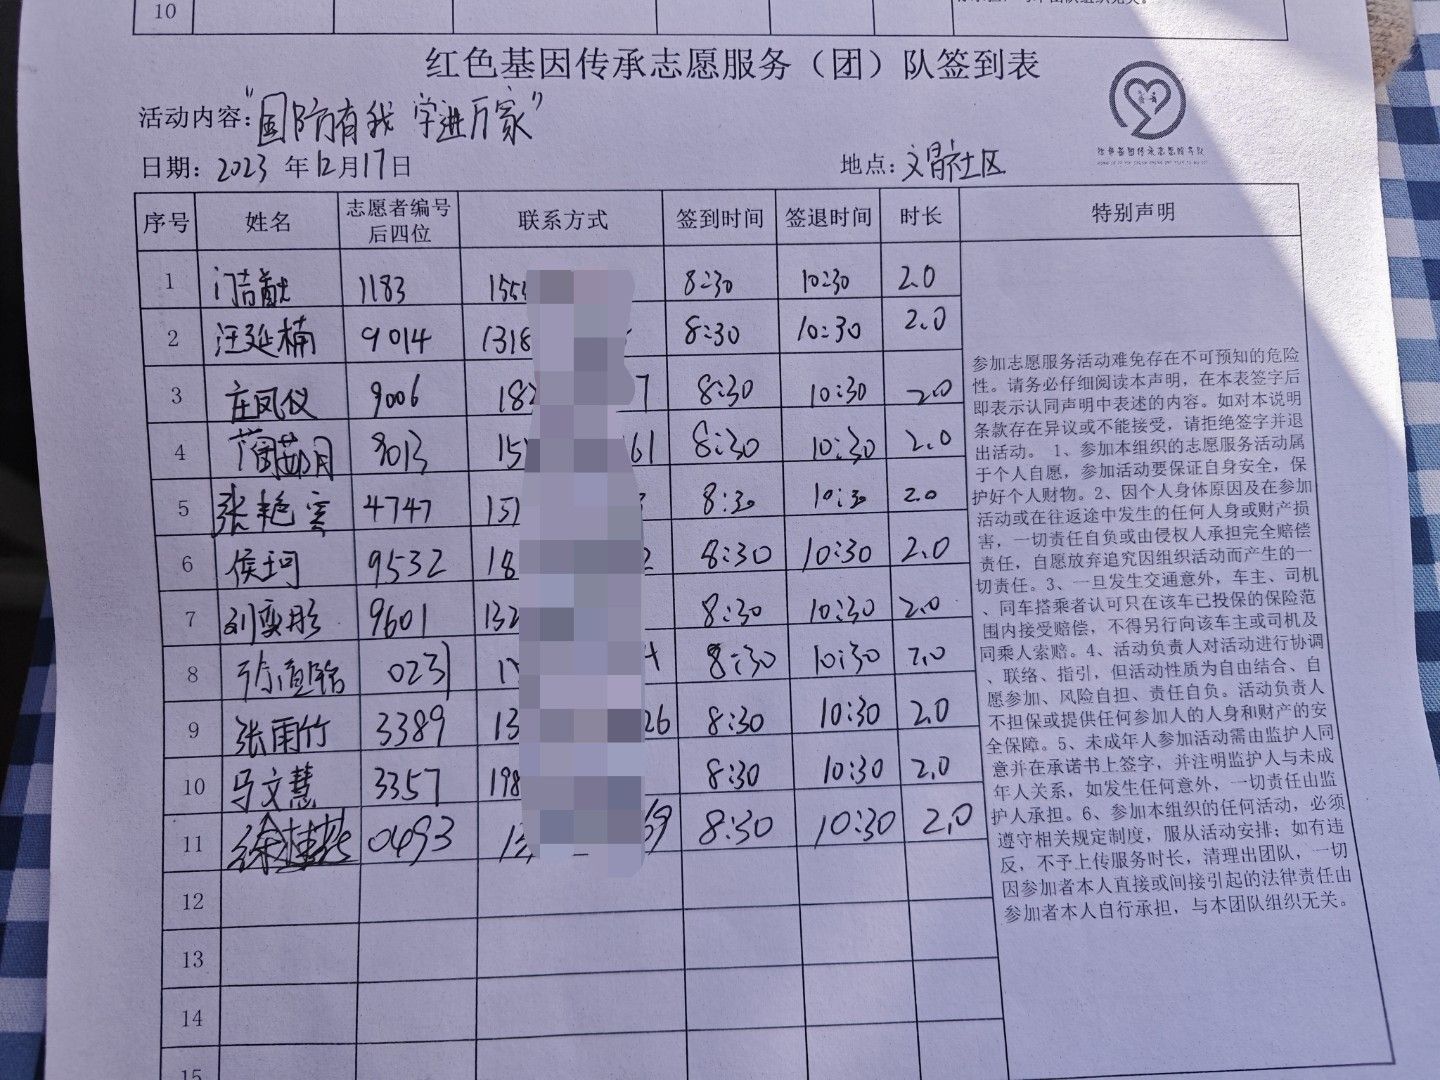 10
红色基因传承志愿服务（团）队签到表
活动内容："国防有我 字进万家"
日期：2023年12月17日 地点：文昌社区
序号 姓名 志愿者编号后四位 联系方式 签到时间 签退时间 时长 特别声明
1 1183 155 8:30 10:30 2.0
2 汪延楠 9014 1318 8:30 10:30 2.0
3 庄凤仪 9006 182 7 8:30 10:30 2.0
4 8013 15 61 8:30 10:30 2.0
5 张艳雲 4747 8:30 10:30 2.0
6 侯珂 9532 18 2 8:30 10:30 2.0
7 刘奕彤 9601 132 8:30 10:30 2.0
8 0231 8:30 10:30 2.0
9 张雨竹 3389 13 26 8:30 10:30 2.0
10 马文慧 3357 198 8:30 10:30 2.0
11 0493 69 8:30 10:30 2.0
12
13
14
15
参加志愿服务活动难免存在不可预知的危险
性。请务必仔细阅读本声明，在本表签字后
即表示认同声明中表述的内容。如对本说明
条款存在异议或不能接受，请拒绝签字并退
出活动。 1、参加本组织的志愿服务活动属
于个人自愿，参加活动要保证自身安全，保
护好个人财物。2、因个人身体原因及在参加
活动或在往返途中发生的任何人身或财产损
害，一切责任自负或由侵权人承担完全赔偿
责任，自愿放弃追究因组织活动而产生的一
切责任。3、一旦发生交通意外，车主、司机
、同车搭乘者认可只在该车已投保的保险范
围内接受赔偿，不得另行向该车主或司机及
同乘人索赔。4、活动负责人对活动进行协调
、联络、指引，但活动性质为自由结合、自
愿参加、风险自担、责任自负。活动负责人
不担保或提供任何参加人的人身和财产的安
全保障。5、未成年人参加活动需由监护人同
意并在承诺书上签字，并注明监护人与未成
年人关系，如发生任何意外，一切责任由监
护人承担。6、参加本组织的任何活动，必须
遵守相关规定制度，服从活动安排；如有违
反，不予上传服务时长，清理出团队，一切
因参加者本人直接或间接引起的法律责任由
参加者本人自行承担，与本团队组织无关。